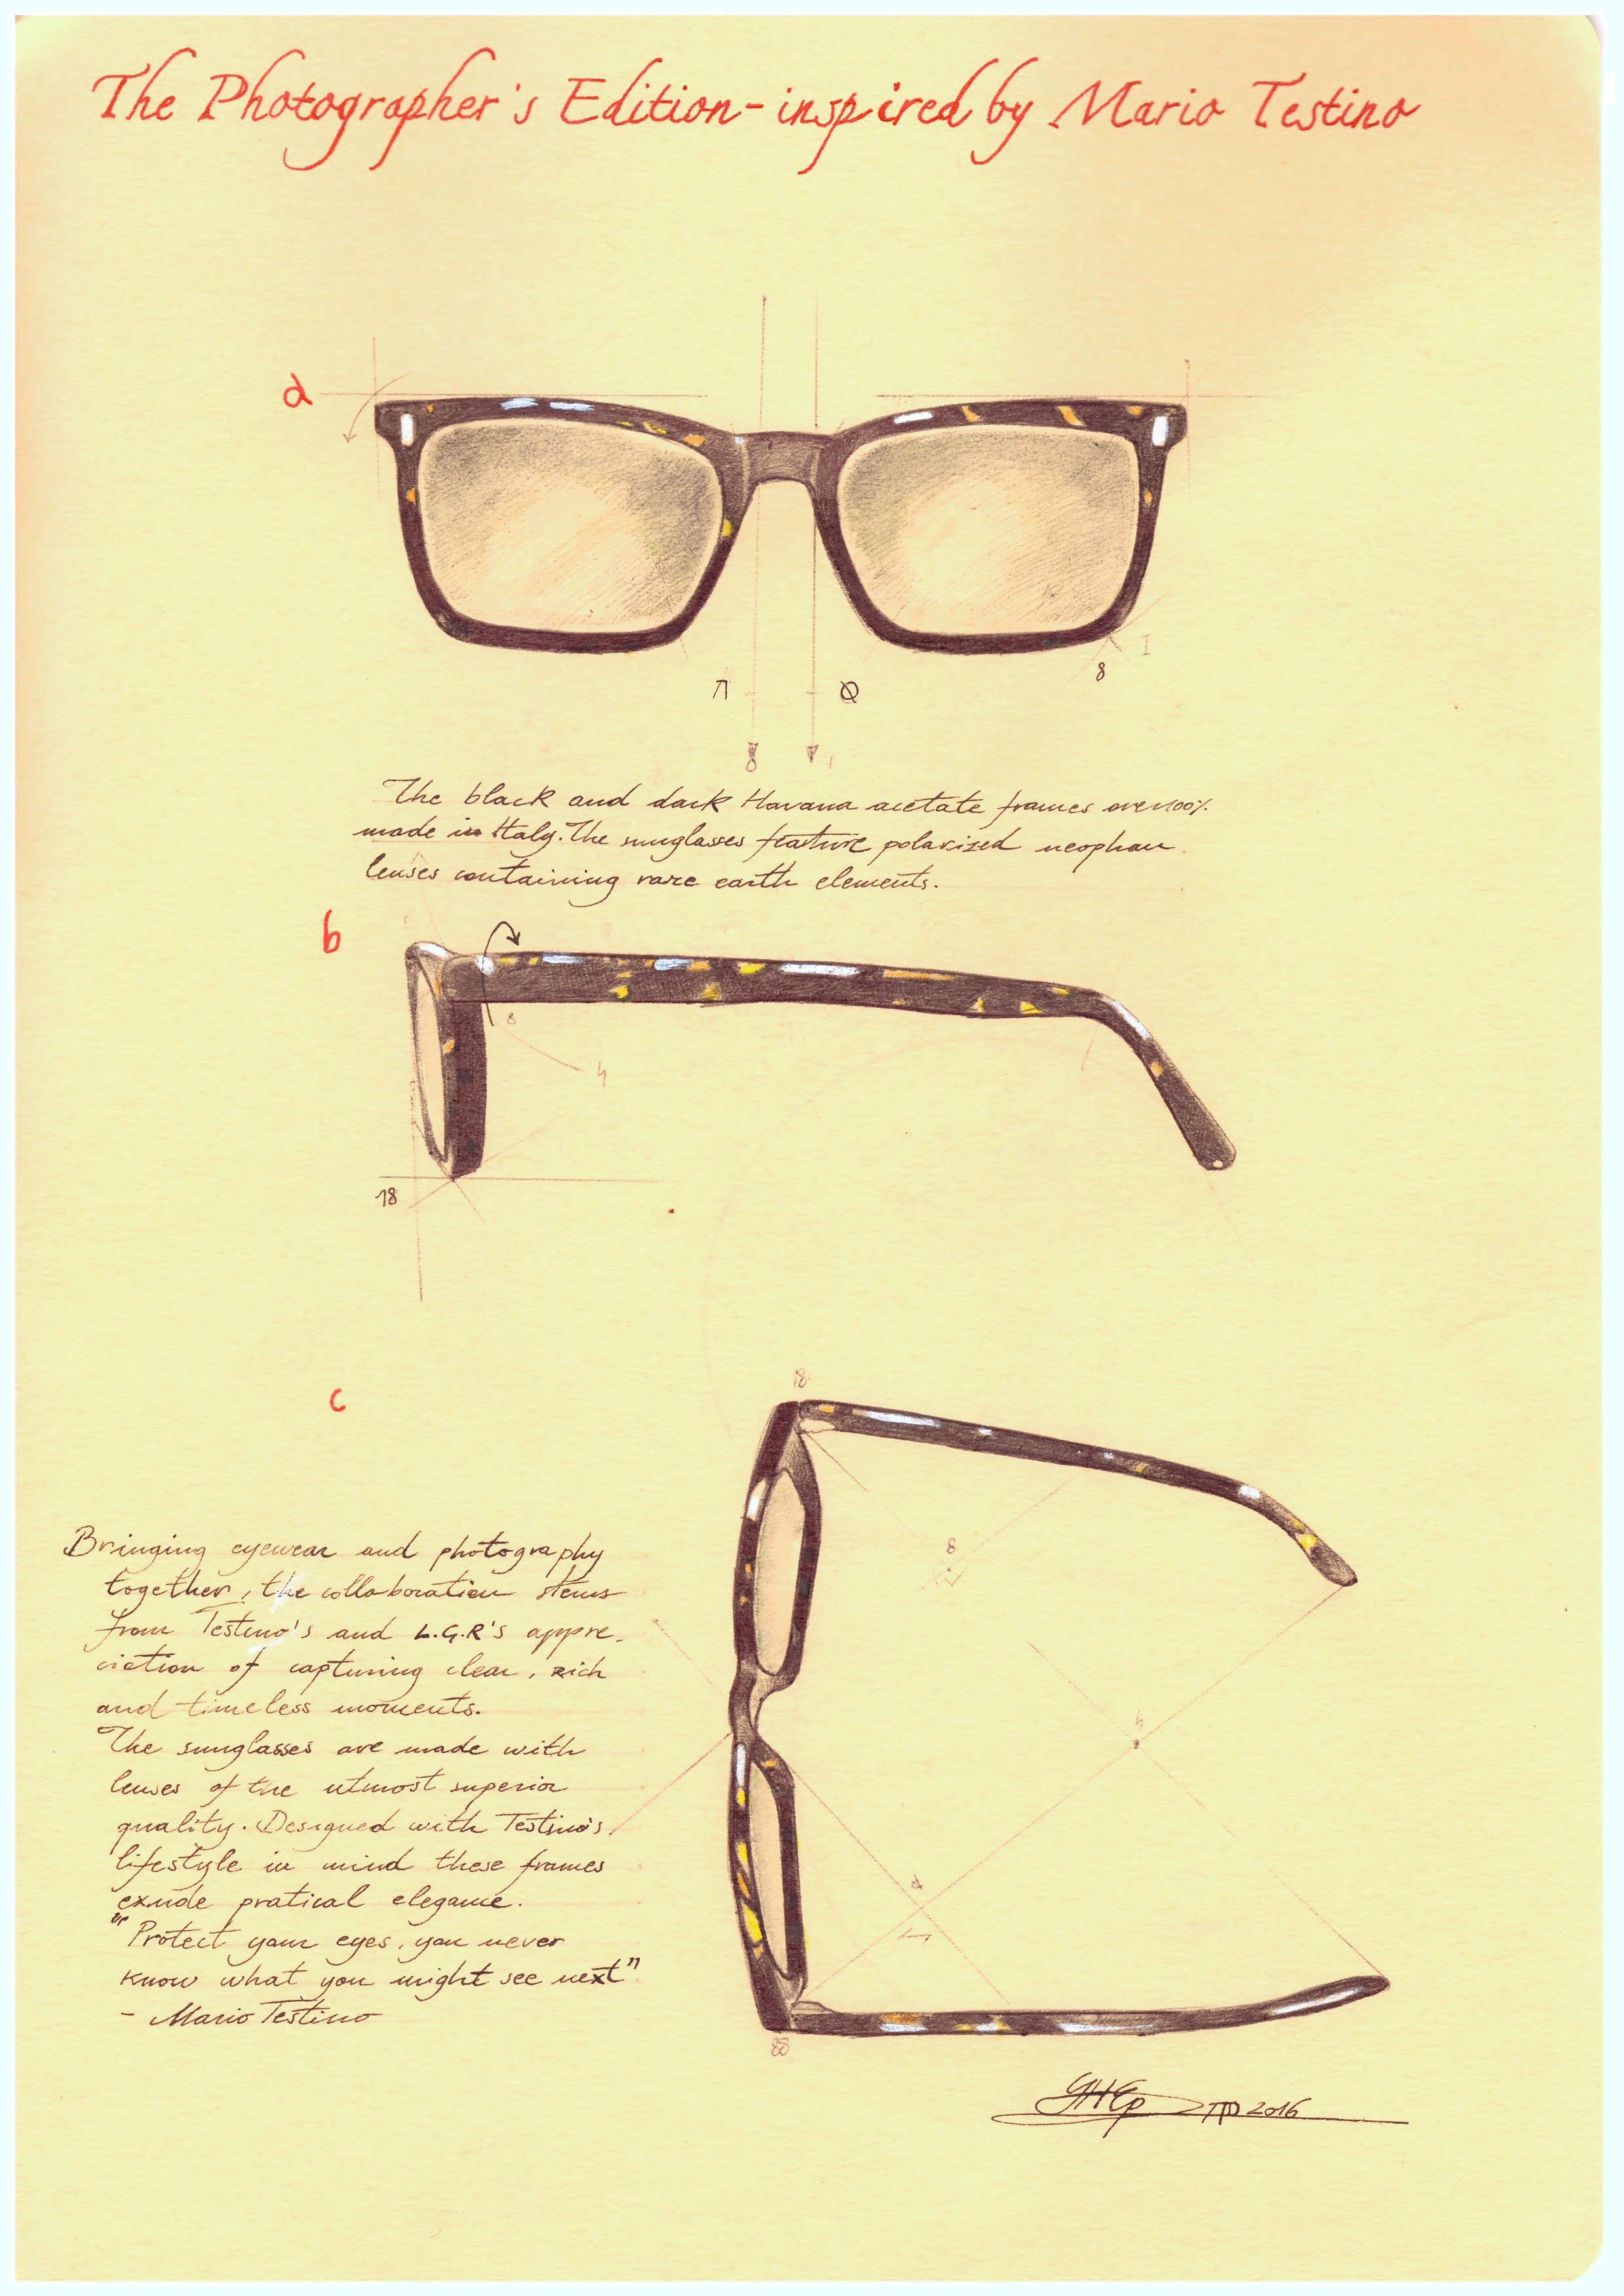 The Photographer's Edition-inspired by Mario Testino
a
8
The black and dark Havana acetate frames are 100%
made in Italy. The sunglasses feature polarized neophan
lenses containing rare earth elements.
b
8
4
18
c
18
8
Bringing eyewear and photography
together, the collaboration stems
from Testino's and L.G.R's appre-
ciation of capturing clear, rich
and timeless moments.
The sunglasses are made with
lenses of the utmost superior
quality. Designed with Testino's
lifestyle in mind these frames
exude pratical elegance.
"Protect your eyes, you never
know what you might see next"
- Mario Testino
88
2016